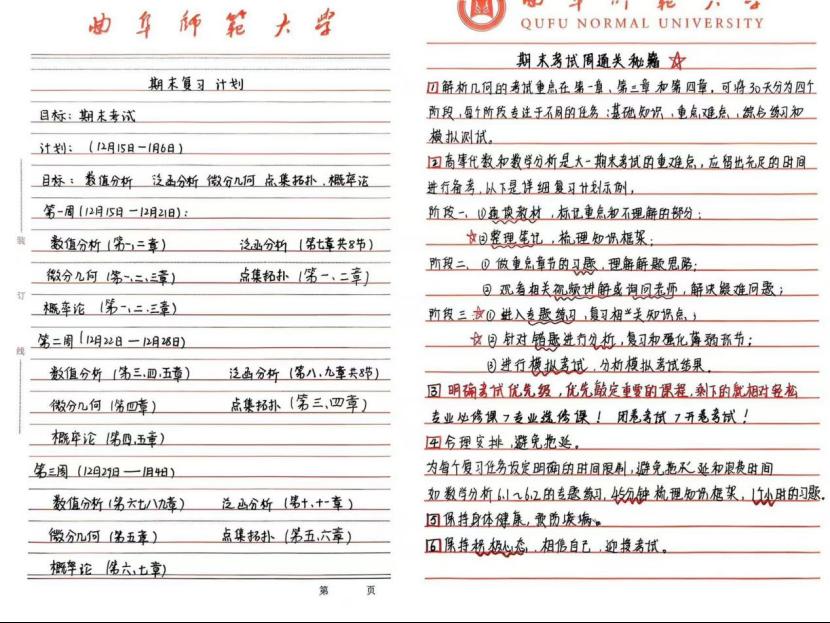 曲阜师范大学
期末复习 计划
目标：期末考试
计划：（12月15日—1月6日）
目标：数值分析 泛函分析 微分几何 点集拓扑、概率论
第一周（12月15日—12月21日）：
数值分析（第一、二章） 泛函分析（第七章共8节）
微分几何（第一、二、三章） 点集拓扑（第一、二章）
概率论（第一、二、三章）
第二周（12月22日—12月28日）
数值分析（第三、四、五章） 泛函分析（第八、九章共8节）
微分几何（第四章） 点集拓扑（第三、四章）
概率论（第四、五章）
第三周（12月29日—1月4日）
数值分析（第六七八九章） 泛函分析（第十、十一章）
微分几何（第五章） 点集拓扑（第五、六章）
概率论（第六、七章）
第 页
装
订
线
曲阜师范大学
QUFU NORMAL UNIVERSITY
期末考试周通关秘籍 ☆
1 解析几何的考试重点在第一章、第三章和第四章，可将30天分为四个
阶段，每个阶段专注于不同的任务：基础知识、重点难点、综合练习和
模拟测试。
2 高等代数和数学分析是大一期末考试的重难点，应留出充足的时间
进行备考，以下是详细复习计划示例。
阶段一、①通读教材，标记重点和不理解的部分；
☆②整理笔记，梳理知识框架；
阶段二、①做重点章节的习题，理解解题思路；
②观看相关视频讲解或询问老师，解决疑难问题；
阶段三 ☆①进入专题练习，复习相关知识点；
☆②针对错题进行分析，复习和强化薄弱环节；
③进行模拟考试，分析模拟考试结果。
3 明确考试优先级，优先敲定重要的课程，剩下的就相对轻松
专业必修课>专业选修课！ 闭卷考试>开卷考试！
4 合理安排，避免拖延。
为每个复习任务设定明确的时间限制，避免拖延和浪费时间
如数学分析6.1～6.2的专题练习，45分钟梳理知识框架，1个小时的习题.
5 保持身体健康，预防疾病。
6 保持积极心态，相信自己，迎接考试。